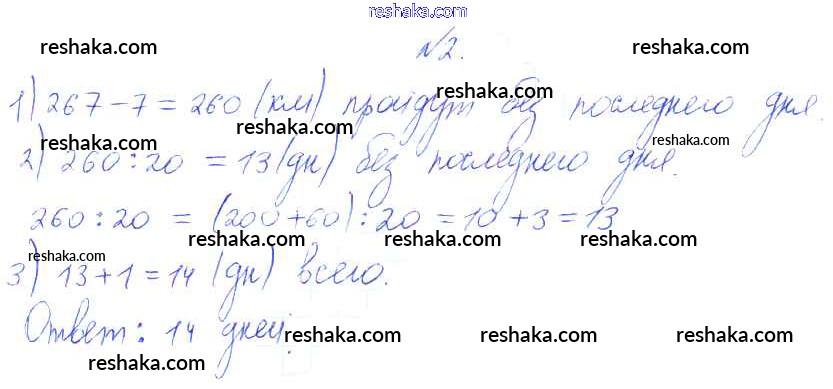 reshaka.com
reshaka.com reshaka.com
№2.
reshaka.com
1) 267-7=260 (км) пройдут без последнего дня.
reshaka.com reshaka.com
2) 260:20 =13(дн) без последнего дня.
reshaka.com
260:20 = (200+60):20 =10+3=13
reshaka.com reshaka.com
reshaka.com
3) 13+1=14 (дн) всего.
reshaka.com
Ответ: 14 дней.
reshaka.com reshaka.com
reshaka.com
reshaka.com